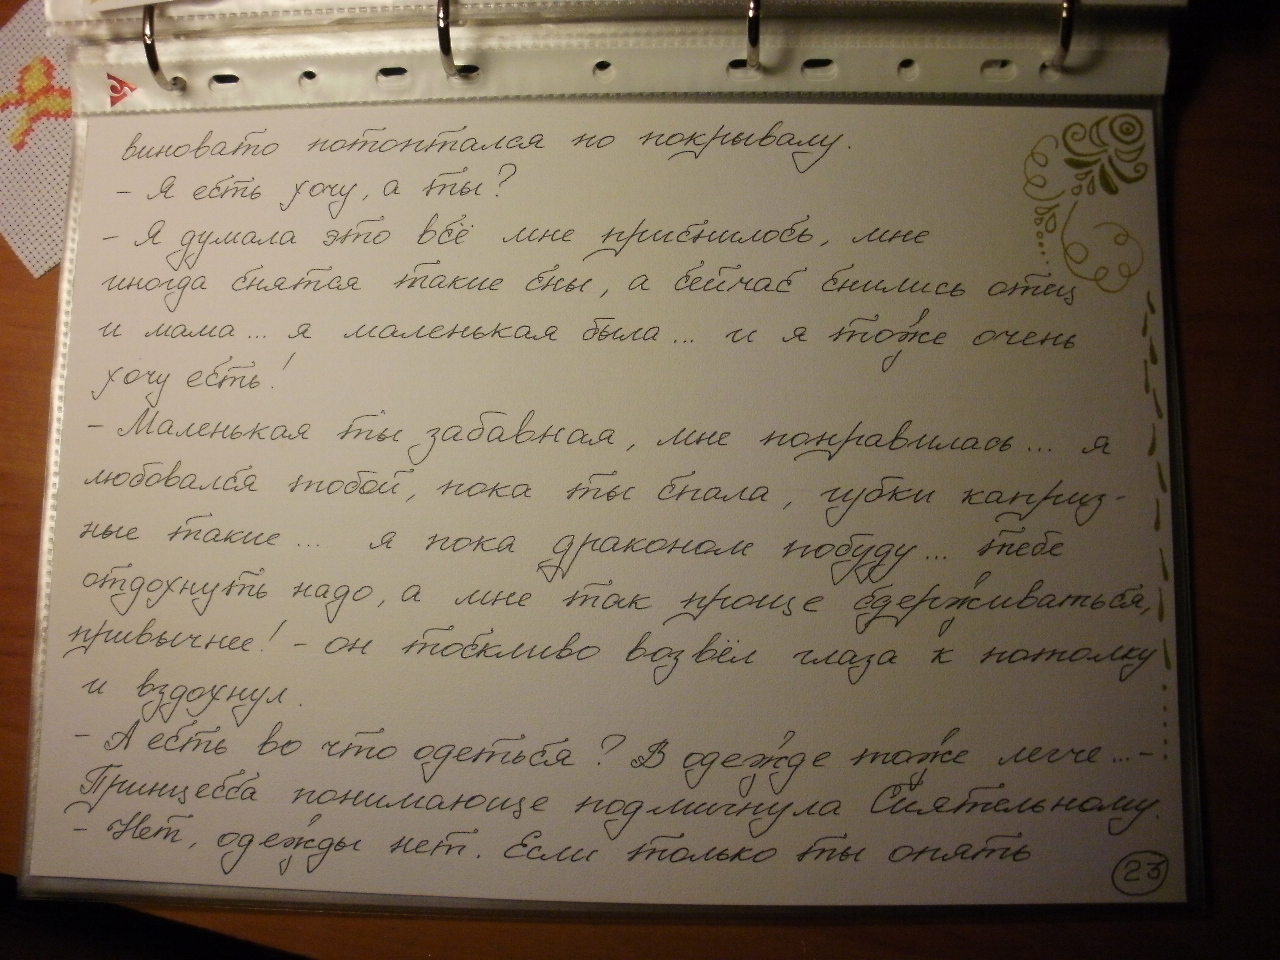 виновато потоптался по покрывалу.
- Я есть хочу, а ты?
- Я думала это всё мне приснилось, мне
иногда снятся такие сны, а сейчас снились отец
и мама... я маленькая была... и я тоже очень
хочу есть!
- Маленькая ты забавная, мне понравилась... я
любовался тобой, пока ты спала, губки каприз-
ные такие... я пока драконом побуду... тебе
отдохнуть надо, а мне так проще сдерживаться,
привычнее! - он тоскливо возвёл глаза к потолку
и вздохнул.
- А есть во что одеться? В одежде тоже легче...-
Принцесса понимающе подмигнула Сиятельному.
- Нет, одежды нет. Если только ты опять
23